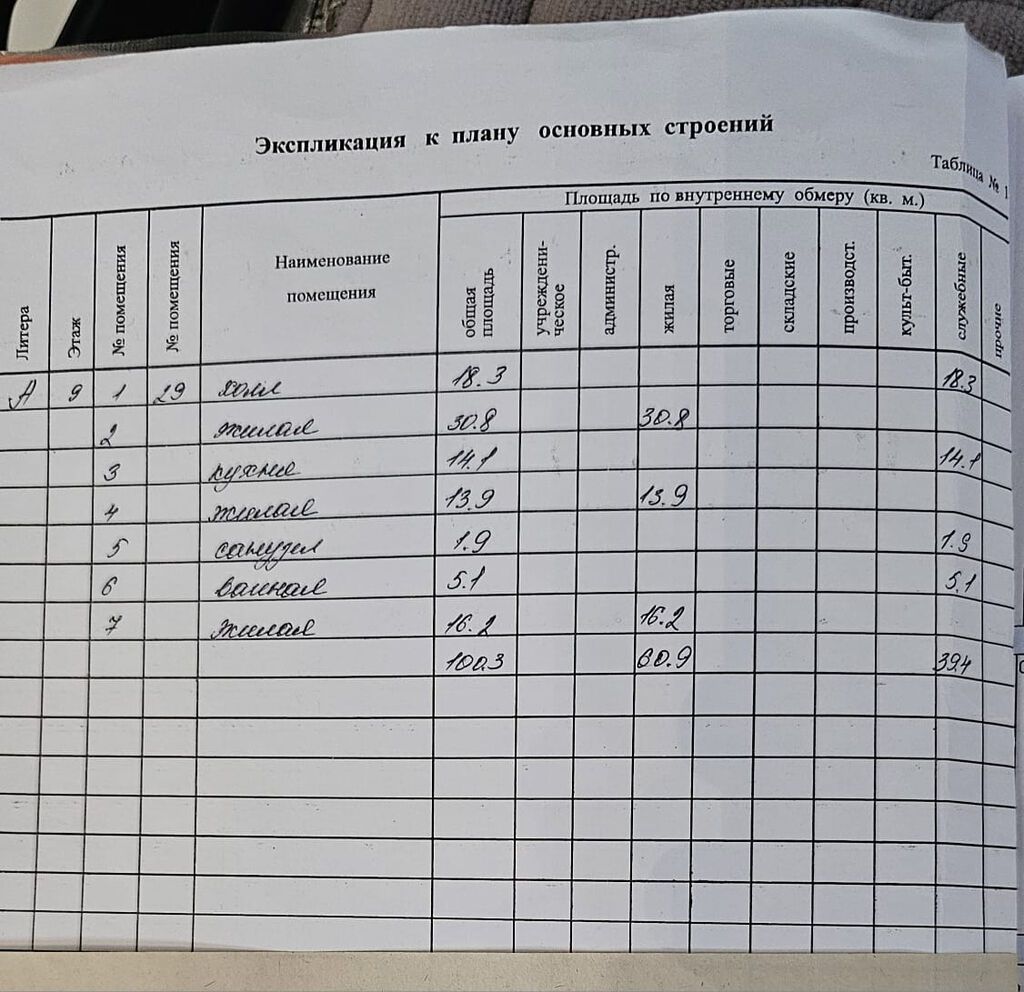 Экспликация к плану основных строений
Таблица № 1
Литера
Этаж
№ помещения
№ помещения
Наименование помещения
Площадь по внутреннему обмеру (кв. м.)
общая площадь
учреждени-ческое
администр.
жилая
торговые
складские
производст.
культ-быт.
служебные
прочие
А 9 1 29 холл 18.3 18.3
2 жилая 30.8 30.8
3 кухня 14.1 14.1
4 жилая 13.9 13.9
5 санузел 1.9 1.9
6 ванная 5.1 5.1
7 жилая 16.2 16.2
100.3 60.9 39.4